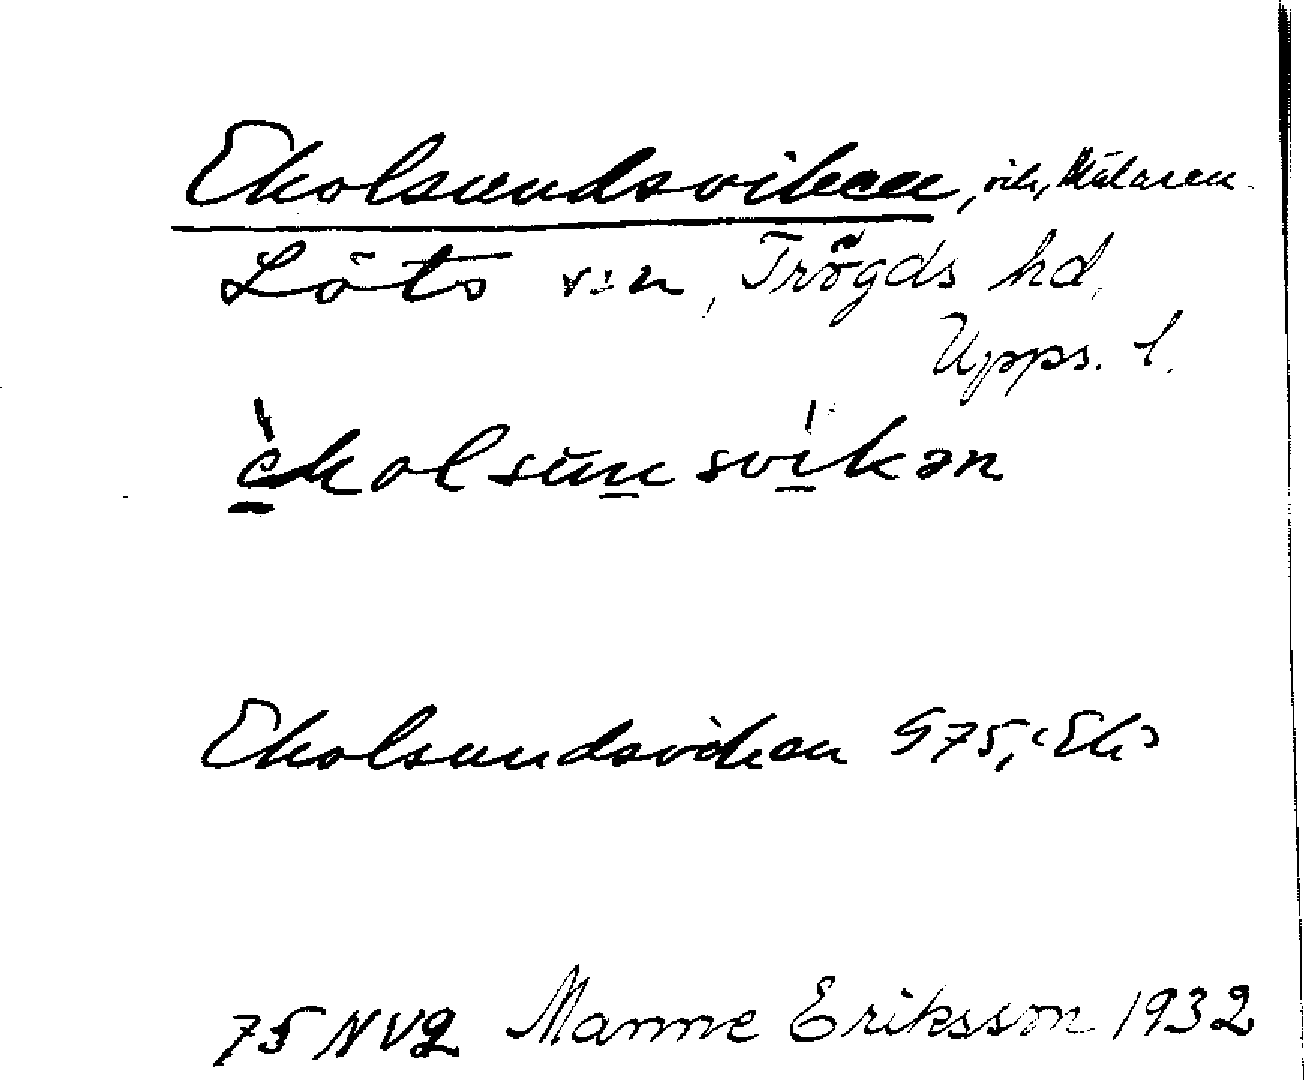 Ekolsundsviken, vik, Mälaren.
Löts sn, Trögds hd,
Upps. l.
èkolsun svìkən
Ekolsundsviken G75, ‹Ek›
75 NV2 Manne Eriksson 1932